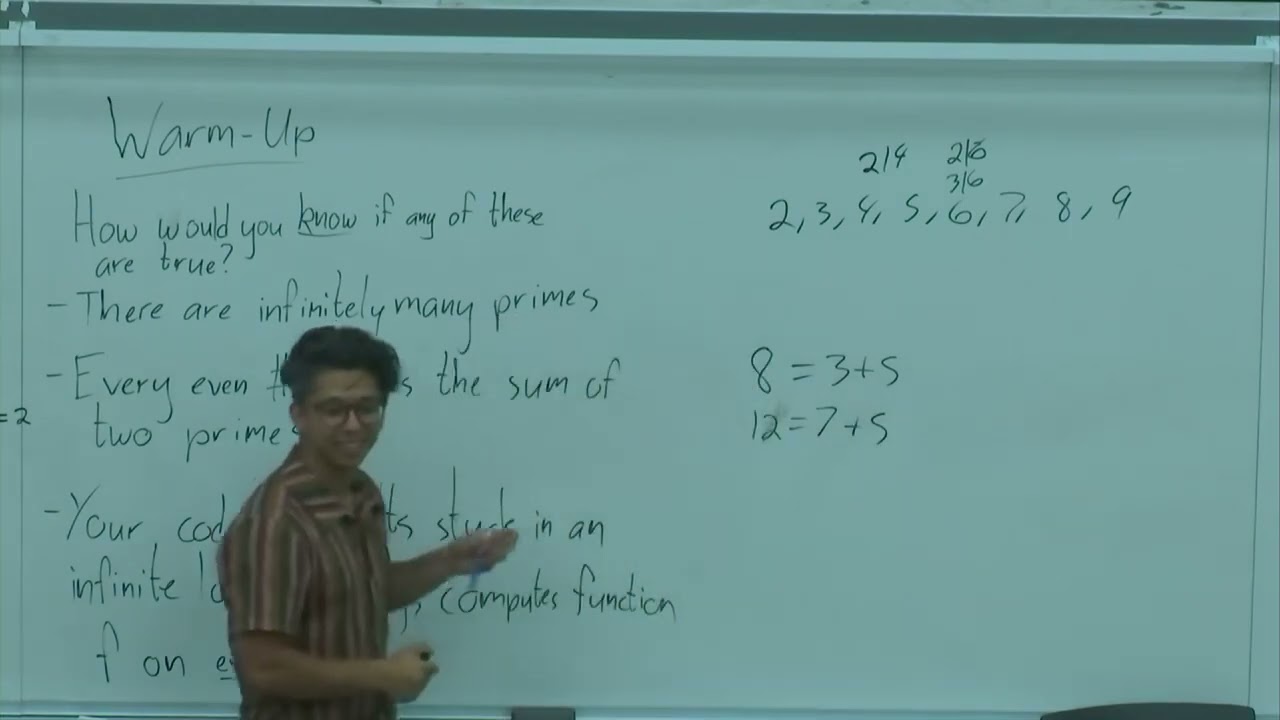 Warm-Up
How would you know if any of these
are true?
- There are infinitely many primes
- Every even the sum of
two prime
- Your cod stuck in an
infinite computes function
f on
= 2
2|4 2|6
3|6
2, 3, 4, 5, 6, 7, 8, 9
8 = 3+5
12 = 7+5